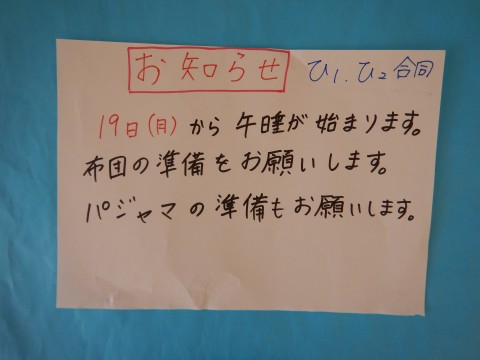 お知らせ ひ1.ひ2合同
19日(月)から午睡が始まります。
布団の準備をお願いします。
パジャマの準備もお願いします。